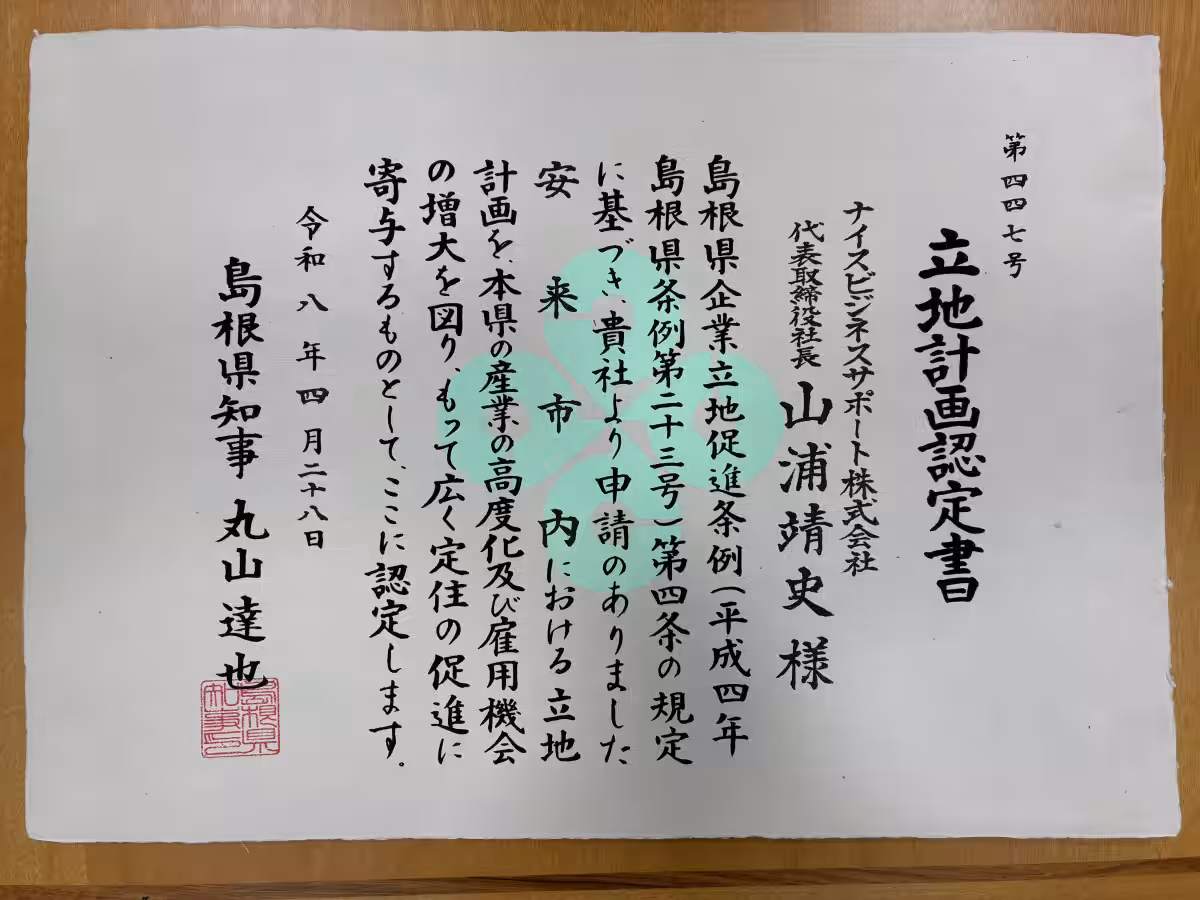 第四四七号
立地計画認定書
ナイスビジネスサポート株式会社
代表取締役社長 山浦靖史様
島根県企業立地促進条例(平成四年
島根県条例第二十三号)第四条の規定
に基づき、貴社より申請のありました
安来市内における立地
計画を、本県の産業の高度化及び雇用機会
の増大を図り、もって広く定住の促進に
寄与するものとして、ここに認定します。
令和八年四月二十八日
島根県知事 丸山達也
島根県知事之印